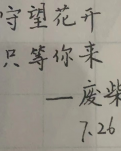 守望花开
只等你来
—废柴
7.26